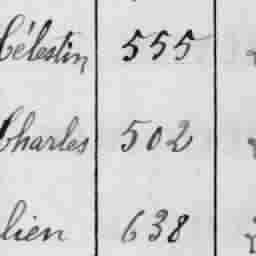 Célestin 555
Charles 502
lien 638